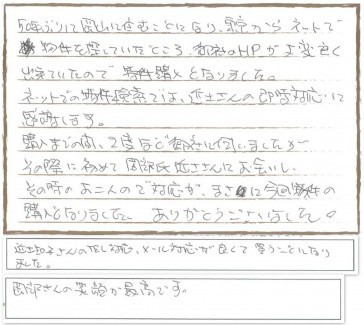 50年ぶりに岡山に住むことになり、東京からネットで
物件を探していたところ、御社のHPが大変良く
出来ていたので 物件購入となりました。
ネットでの物件検索では、近土さんの即時対応に
感謝します。
購入までの間、2度ほど御社に伺いましたが
その際に初めて岡部氏 近土さんにお会いし、
その時のお二人のご対応が、まさに今回物件の
購入となりました。 ありがとうございました。
さんの 対応、メール対応が良くて 買うことになり
ました。
岡部さんの笑顔が最高です。